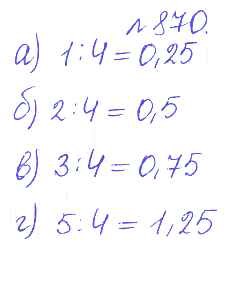 № 870.
а) 1 : 4 = 0,25
б) 2 : 4 = 0,5
в) 3 : 4 = 0,75
г) 5 : 4 = 1,25